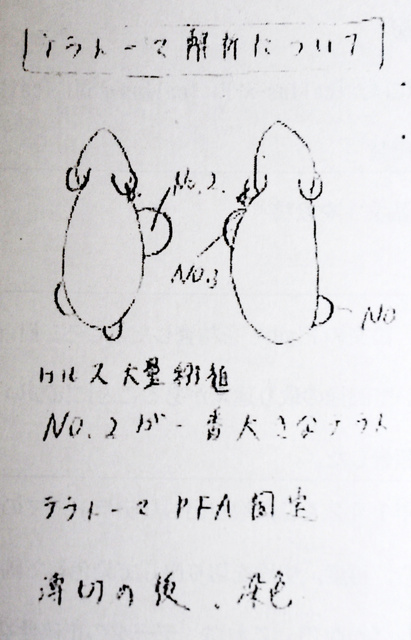 テラトーマ解析について
No.2.
No.3
No
ホルス大量移植
No.2が一番大きなテラト
テラトーマ PFA固定
薄切の後、染色